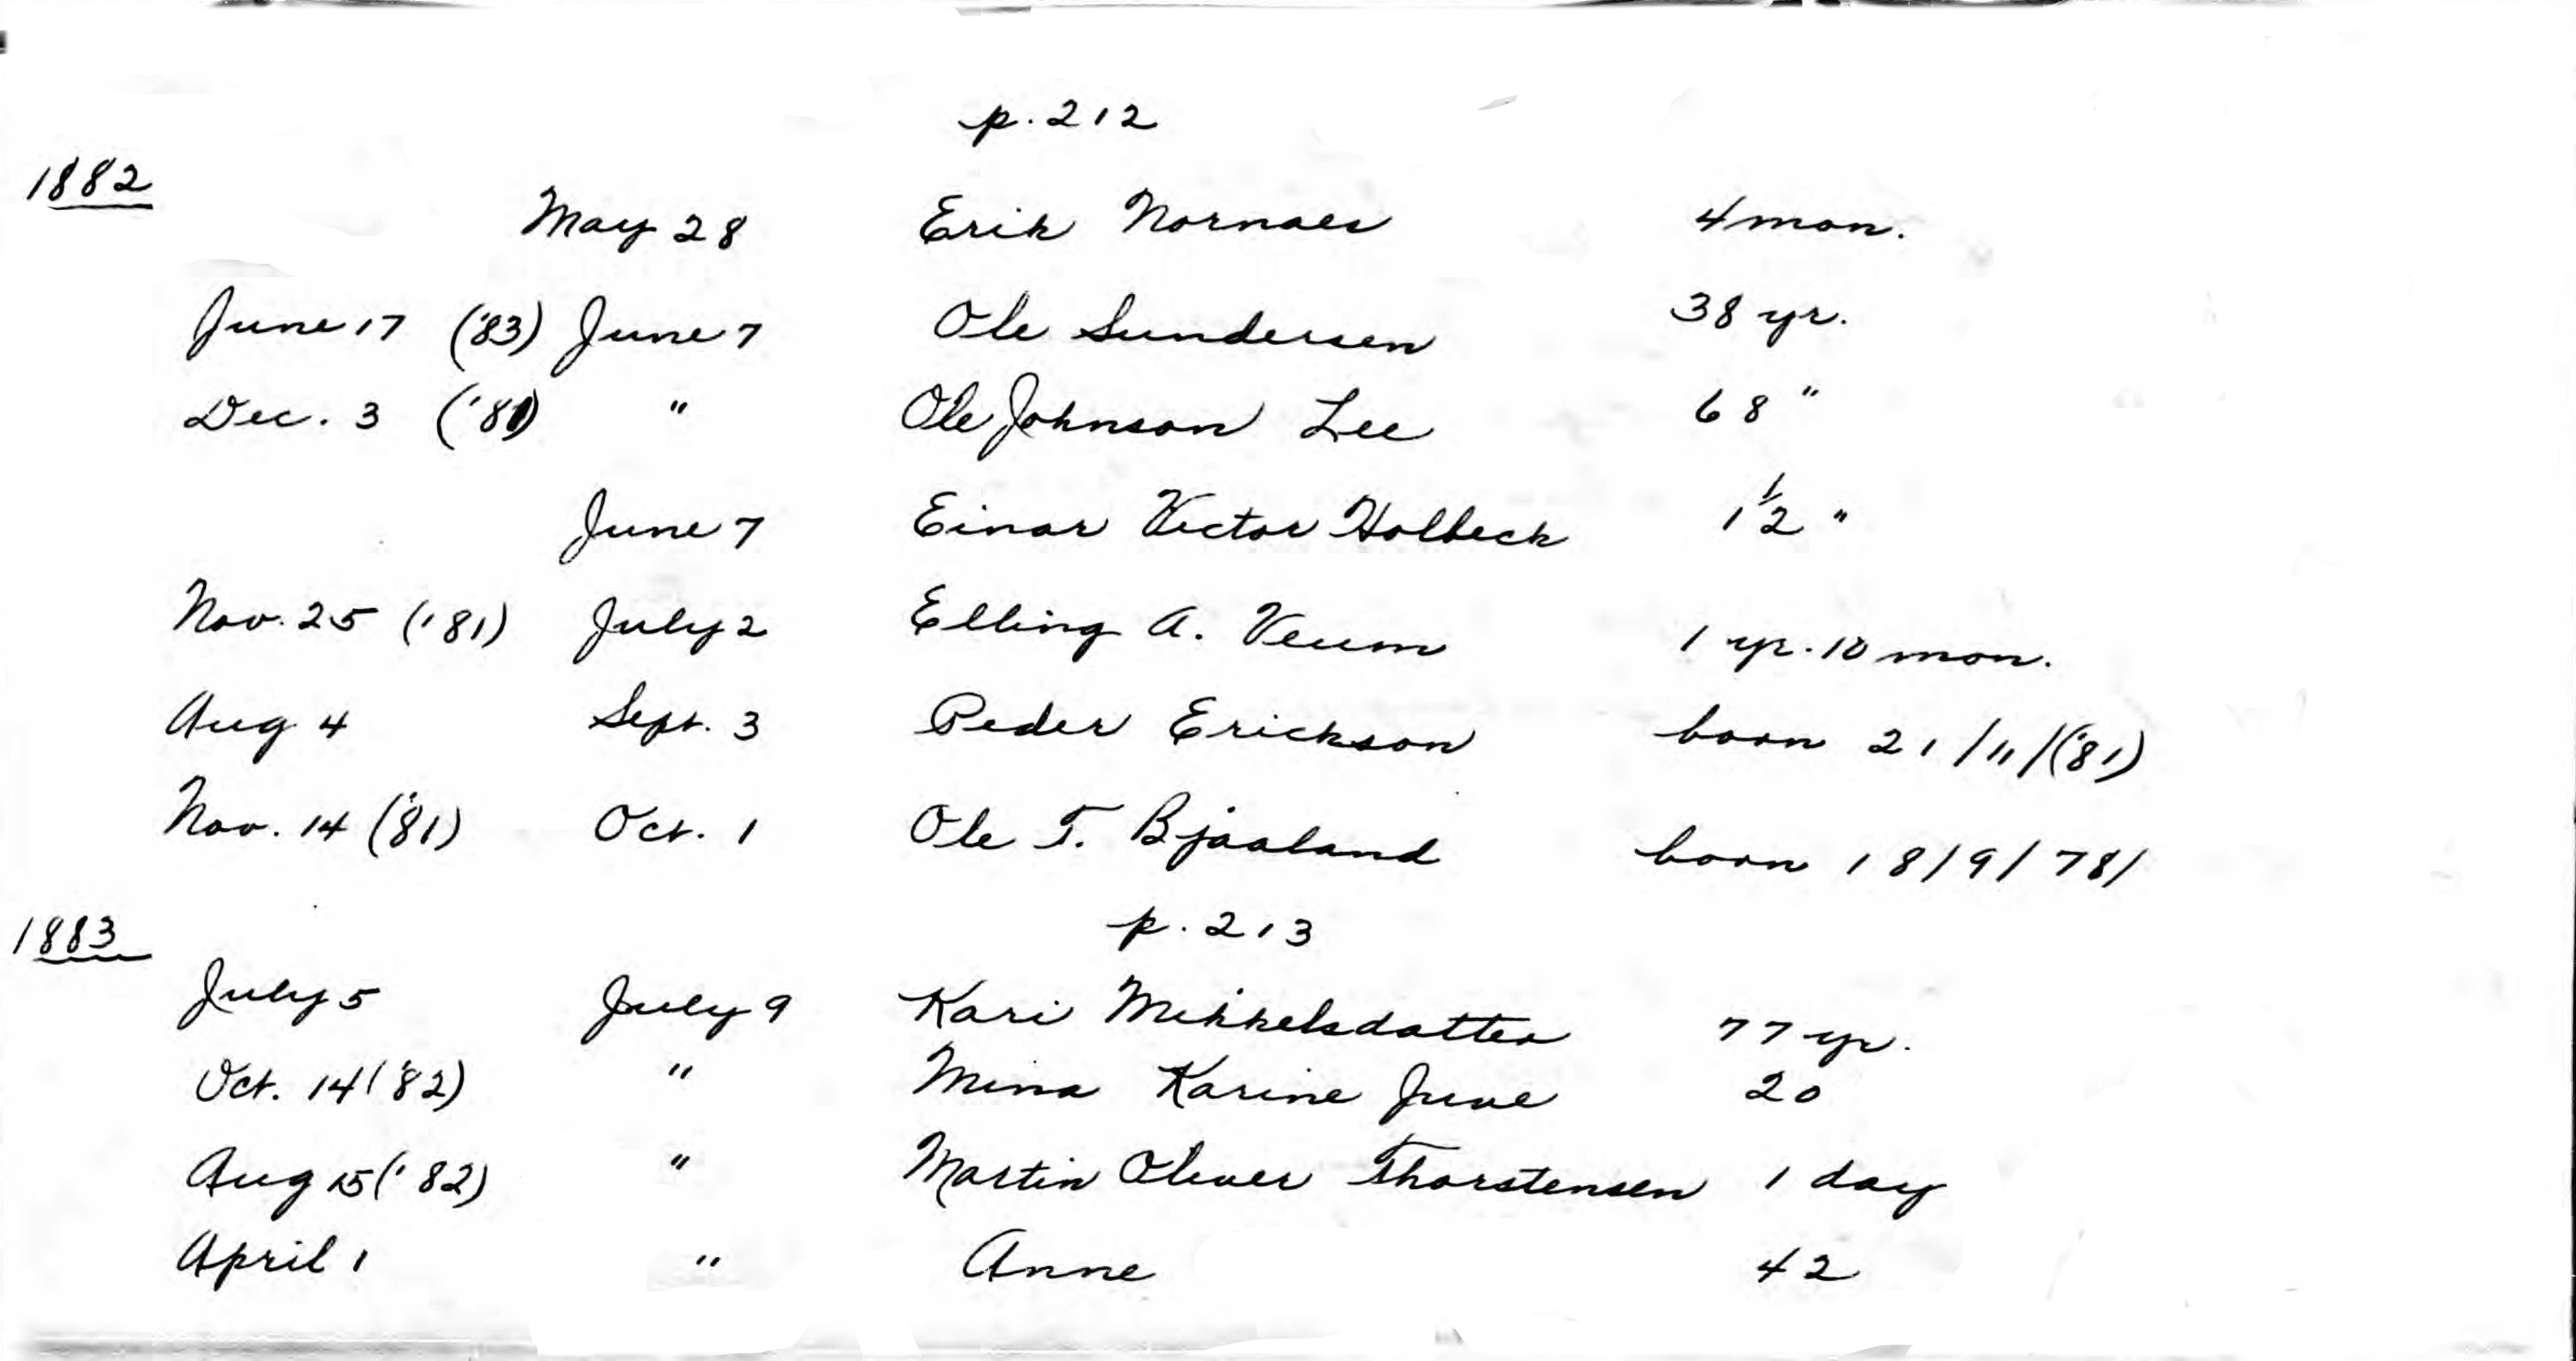 p. 212
1882
May 28 Erik Nornaes 4 mon.
June 17 ('83) June 7 Ole Sundersen 38 yr.
Dec. 3 ('81) " Ole Johnson Lee 68 "
June 7 Einar Victor Holbeck 1 1/2 "
Nov. 25 ('81) July 2 Elling A. Veum 1 yr. 10 mon.
Aug 4 Sept. 3 Peder Erickson born 21/11/('81)
Nov. 14 ('81) Oct. 1 Ole T. Bjaaland born 18/9/78/
p. 213
1883
July 5 July 9 Kari Mikkelsdatter 77 yr.
Oct. 14 ('82) " Mina Karine Juve 20
Aug 15 ('82) " Martin Oliver Thorstensen 1 day
April 1 " Anne 42